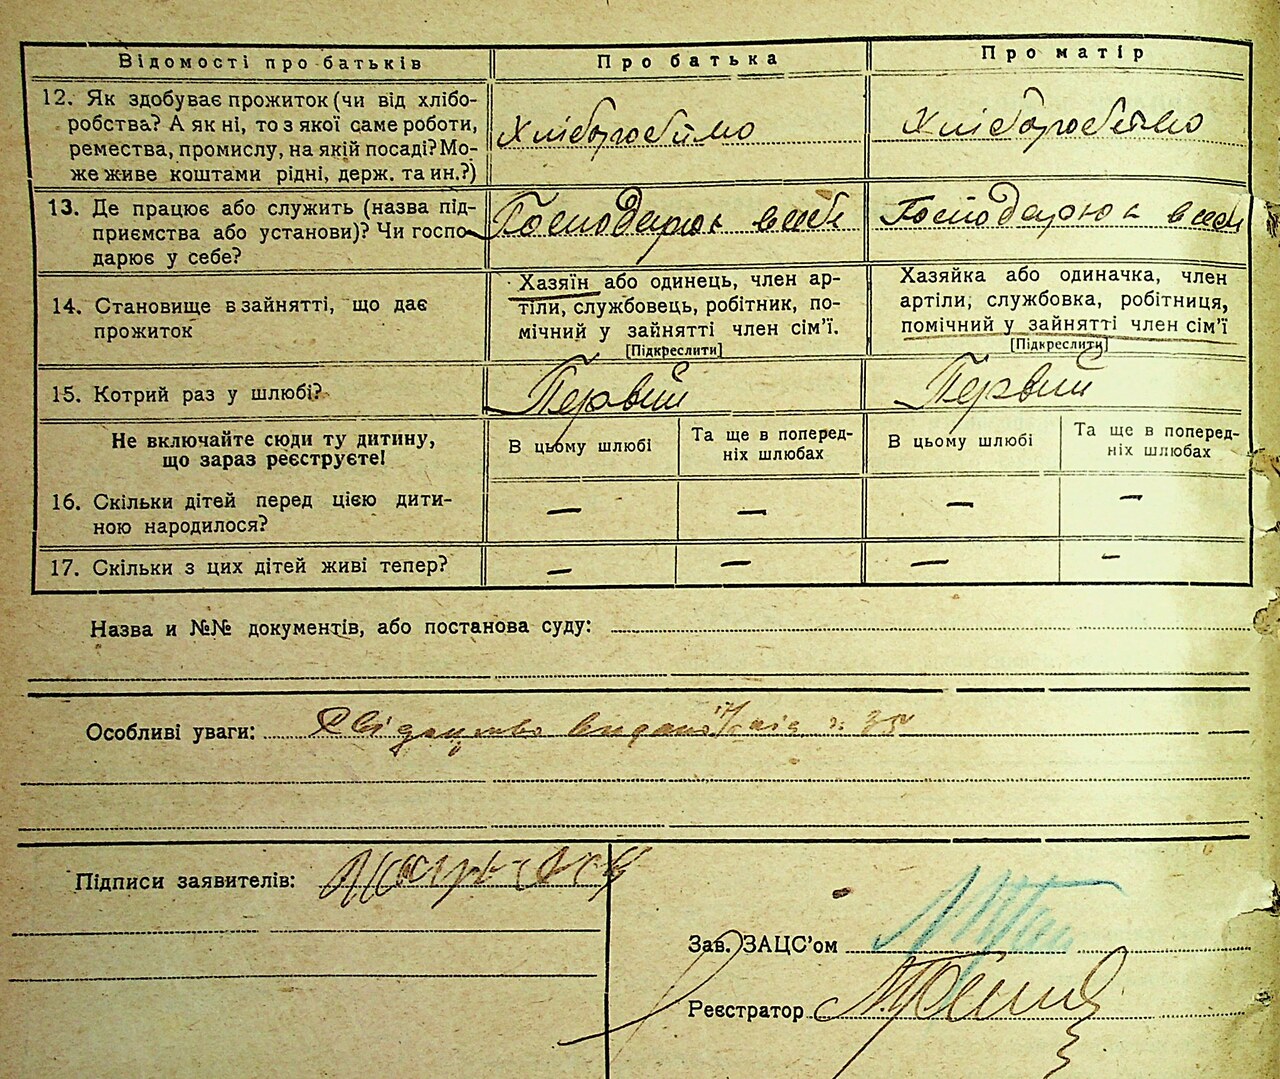 Відомості про батьків
Про батька
Про матір
12. Як здобуває прожиток (чи від хлібо-
робства? А як ні, то з якої саме роботи,
ремества, промислу, на якій посаді? Мо-
же живе коштами рідні, держ. та ин.?)
Хліборобство
Хліборобство
13. Де працює або служить (назва під-
приємства або установи)? Чи госпо-
дарює у себе?
Господарює в себе
Господарює в себе
14. Становище в зайнятті, що дає
прожиток
Хазяїн або одинець, член ар-
тіли, службовець, робітник, по-
мічний у зайнятті член сім'ї.
[Підкреслити]
Хазяйка або одиначка, член
артіли, службовка, робітниця,
помічний у зайнятті член сім'ї
[Підкреслити]
15. Котрий раз у шлюбі?
Первий
Первий
Не включайте сюди ту дитину,
що зараз реєструєте!
В цьому шлюбі
Та ще в поперед-
ніх шлюбах
В цьому шлюбі
Та ще в поперед-
ніх шлюбах
16. Скільки дітей перед цією дити-
ною народилося?
— — — —
17. Скільки з цих дітей живі тепер?
— — — —
Назва и №№ документів, або постанова суду:
Особливі уваги: Свідоцтво видано 35
Підписи заявителів:
Зав. ЗАЦС'ом
Реєстратор